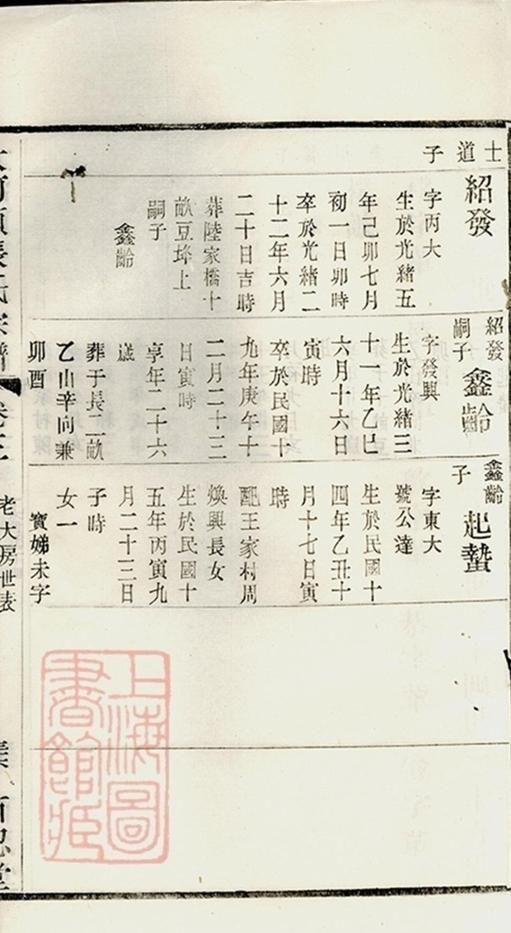 士道子
紹發
字丙大
生於光緒五
年己卯七月
初一日卯時
卒於光緒二
十二年六月
二十日吉時
葬陸家橋十
畝豆埄上
嗣子
鑫齡
紹發
嗣子
鑫齡
字發興
生於光緒三
十一年乙巳
六月十六日
寅時
卒於民國十
九年庚午十
二月二十三
日寅時
享年二十六
歲
葬于長二畝
乙山辛向兼
卯酉
鑫齡
子
起蟄
字東大
號公達
生於民國十
四年乙丑十
月十七日寅
時
配王家村周
煥興長女
生於民國十
五年丙寅九
月二十三日
子時
女一
寶娣未字
張氏宗譜
卷三
老大房世表
百忍堂
上海圖
書館藏